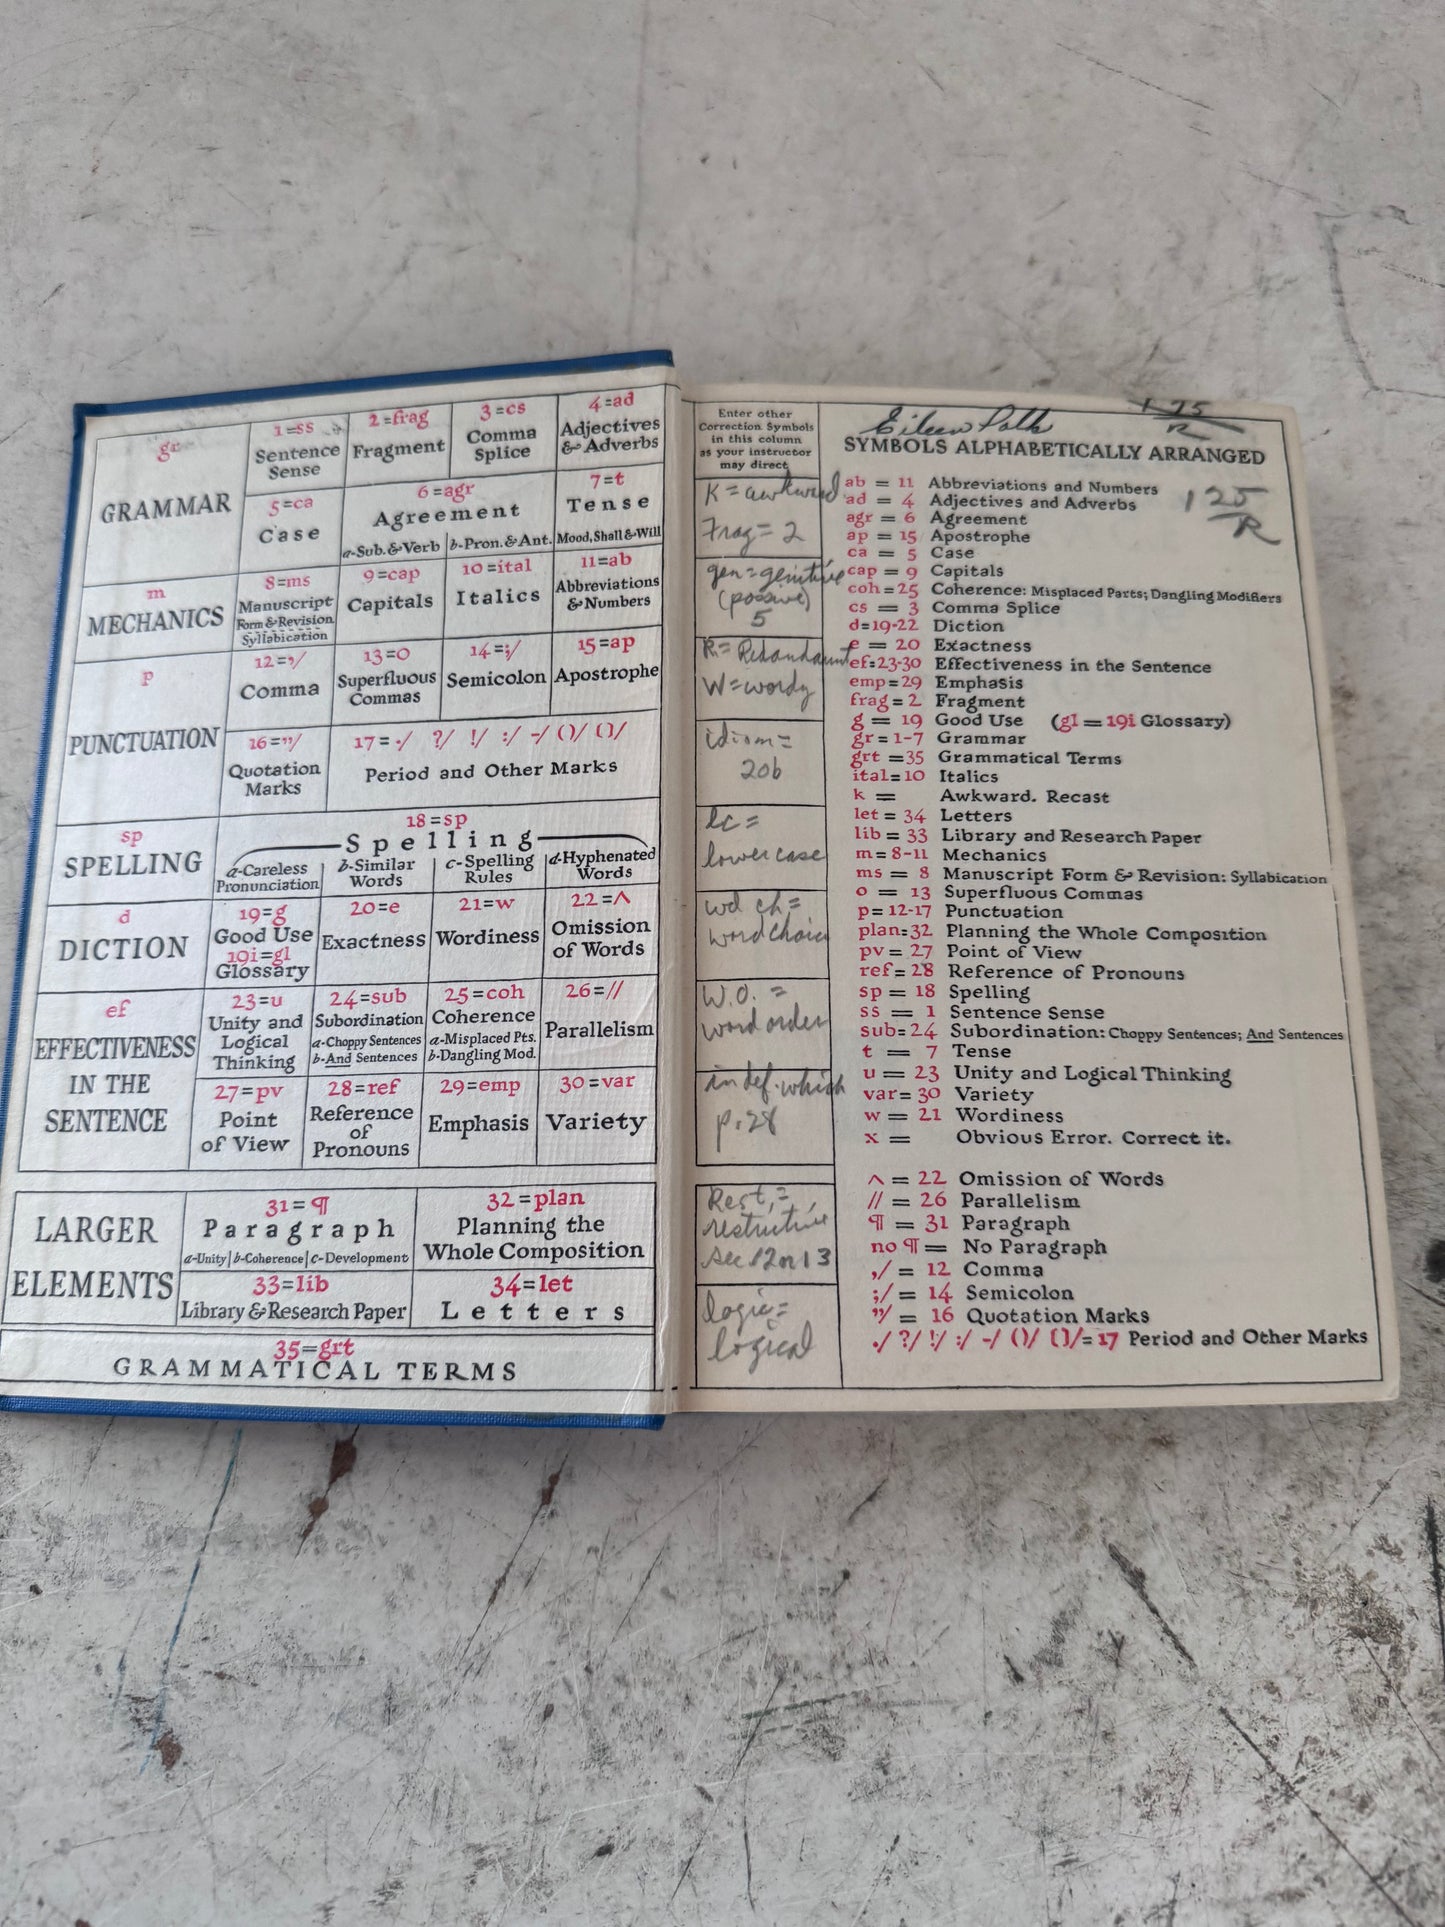 gr
GRAMMAR
1=ss
Sentence
Sense
2=frag
Fragment
3=cs
Comma
Splice
4=ad
Adjectives
& Adverbs
5=ca
Case
6=agr
Agreement
a-Sub. & Verb
b-Pron. & Ant.
7=t
Tense
Mood, Shall & Will
m
MECHANICS
8=ms
Manuscript
Form & Revision
Syllabication
9=cap
Capitals
10=ital
Italics
11=ab
Abbreviations
& Numbers
p
PUNCTUATION
12=,/
Comma
13=O
Superfluous
Commas
14=;/
Semicolon
15=ap
Apostrophe
16=”/
Quotation
Marks
17= ./ ?/ !/ :/ -/ ()/ []/
Period and Other Marks
sp
SPELLING
18=sp
Spelling
a-Careless
Pronunciation
b-Similar
Words
c-Spelling
Rules
d-Hyphenated
Words
d
DICTION
19=g
Good Use
19i=gl
Glossary
20=e
Exactness
21=w
Wordiness
22=∧
Omission
of Words
ef
EFFECTIVENESS
IN THE
SENTENCE
23=u
Unity and
Logical
Thinking
24=sub
Subordination
a-Choppy Sentences
b-And Sentences
25=coh
Coherence
a-Misplaced Pts.
b-Dangling Mod.
26=//
Parallelism
27=pv
Point
of View
28=ref
Reference
of
Pronouns
29=emp
Emphasis
30=var
Variety
LARGER
ELEMENTS
31=¶
Paragraph
a-Unity | b-Coherence | c-Development
32=plan
Planning the
Whole Composition
33=lib
Library & Research Paper
34=let
Letters
35=grt
GRAMMATICAL TERMS
Enter other
Correction Symbols
in this column
as your instructor
may direct
K = awkward
Frag = 2
gen = genitive
5
R = Redandaunt
W = wordy
idiom =
20b
lc =
lower case
wd ch =
word choice
W.O. =
word order
indef. which
p. 28
Rest. =
restrictive
sec 12 or 13
logic =
logical
Eileen
1 75
R
SYMBOLS ALPHABETICALLY ARRANGED
125
R
ab = 11 Abbreviations and Numbers
ad = 4 Adjectives and Adverbs
agr = 6 Agreement
ap = 15 Apostrophe
ca = 5 Case
cap = 9 Capitals
coh = 25 Coherence: Misplaced Parts; Dangling Modifiers
cs = 3 Comma Splice
d=19-22 Diction
e = 20 Exactness
ef=23-30 Effectiveness in the Sentence
emp=29 Emphasis
frag = 2 Fragment
g = 19 Good Use (gl = 19i Glossary)
gr = 1-7 Grammar
grt =35 Grammatical Terms
ital=10 Italics
k = Awkward. Recast
let = 34 Letters
lib = 33 Library and Research Paper
m=8-11 Mechanics
ms = 8 Manuscript Form & Revision: Syllabication
o = 13 Superfluous Commas
p=12-17 Punctuation
plan=32 Planning the Whole Composition
pv = 27 Point of View
ref= 28 Reference of Pronouns
sp = 18 Spelling
ss = 1 Sentence Sense
sub=24 Subordination: Choppy Sentences; And Sentences
t = 7 Tense
u = 23 Unity and Logical Thinking
var= 30 Variety
w = 21 Wordiness
x = Obvious Error. Correct it.
∧ = 22 Omission of Words
// = 26 Parallelism
¶ = 31 Paragraph
no ¶ = No Paragraph
,/ = 12 Comma
;/ = 14 Semicolon
”/ = 16 Quotation Marks
./ ?/ !/ :/ -/ ()/ []/= 17 Period and Other Marks